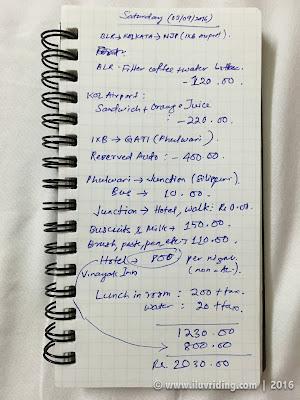 Saturday (03/09/2016)
BLR → KOLKATA → NJP (IXB Airport).
BLR - Filter coffee + water bottle.
- 120.00.
KOL Airport:
Sandwich + Orange Juice
: - 220.00.
IXB → GATI (Phulwari).
Reserved Auto: - 400.00.
Phulwari → Junction (Siliguri).
Bus → 10.00.
Junction → Hotel, walk: Rs 0.00.
Biscuits & Milk → 150.00.
Brush, paste, pen, etc: 110.00.
Hotel → 800 per night.
Vinayak Inn (non a/c.)
Lunch in room: 200 + tax.
Water: 20 + tax.
1230.00
800.00
Rs. 2030.00
www.iluvriding.com | 2016